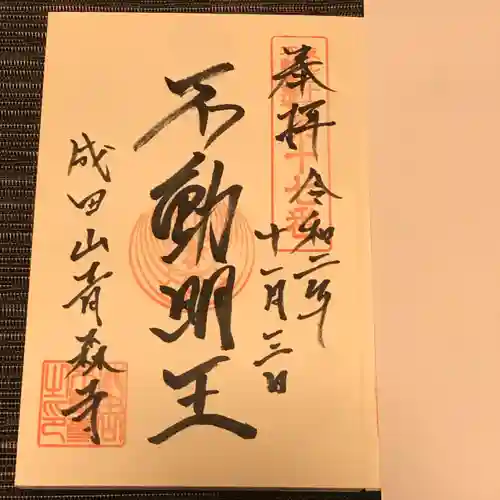 奉拝
令和二年
十一月三日
不動明王
成田山青森寺